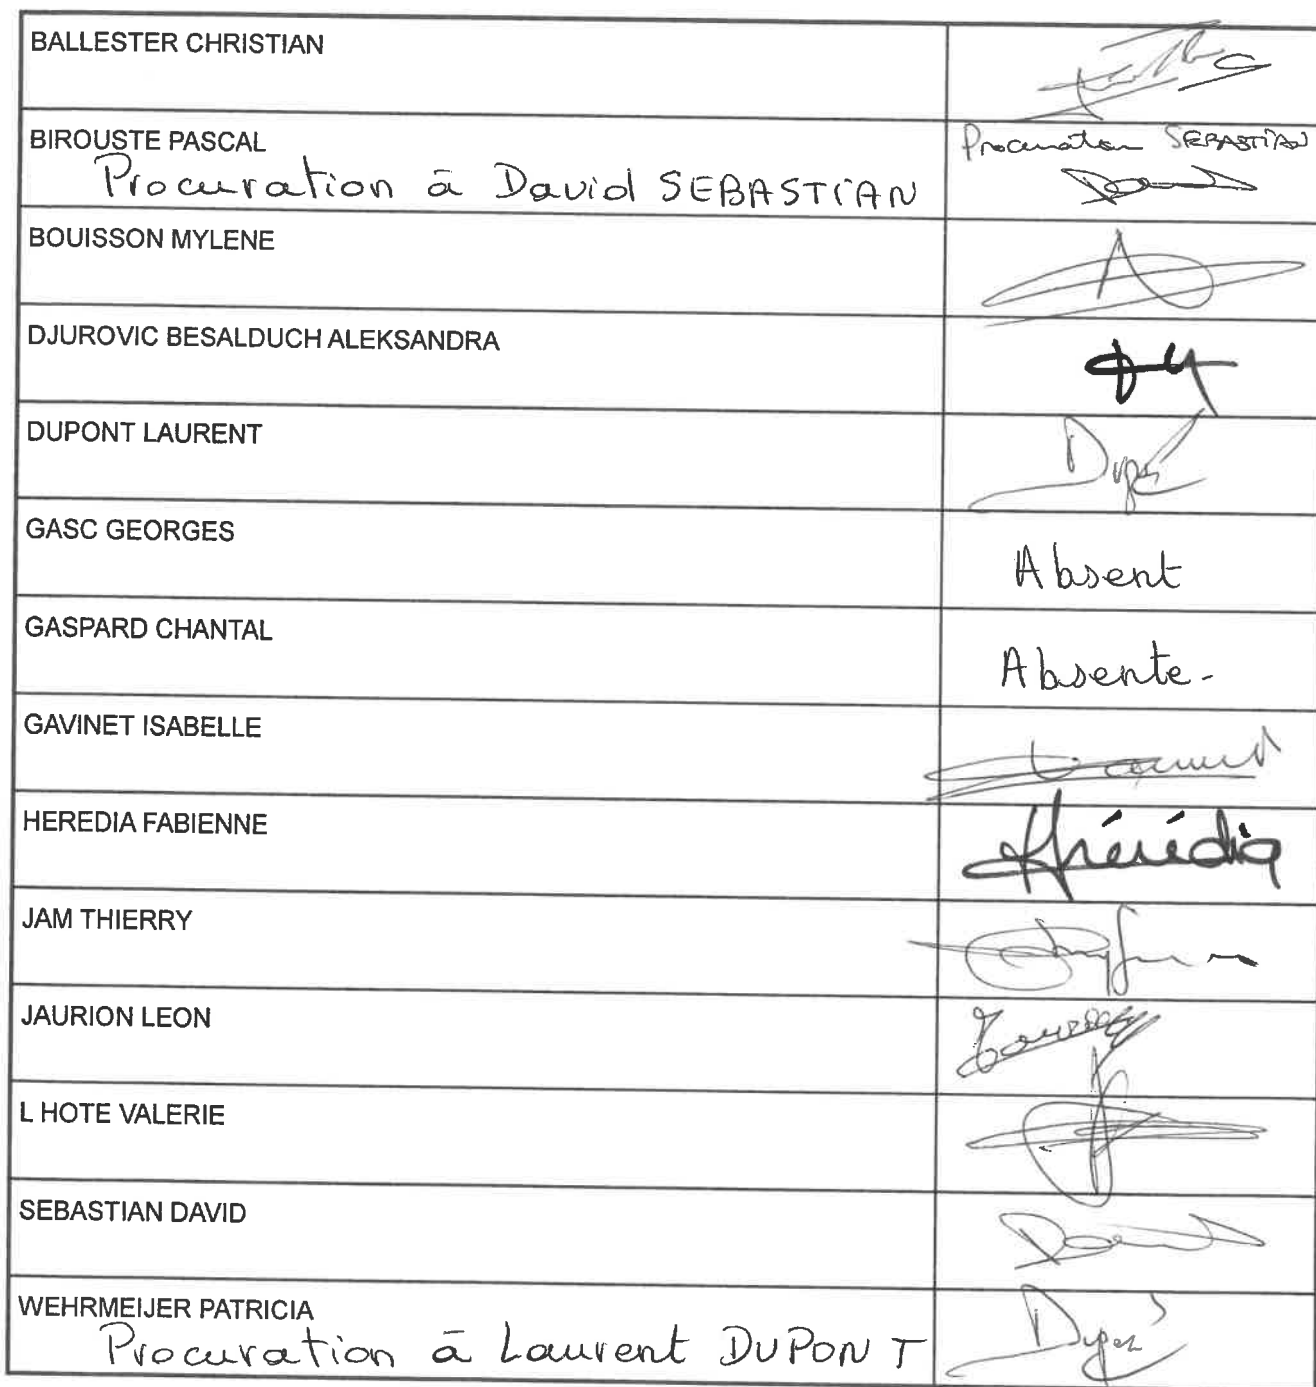 BALLESTER CHRISTIAN
BIROUSTE PASCAL
Procuration SEBASTIAN
Procuration à David SEBASTIAN
BOUISSON MYLENE
DJUROVIC BESALDUCH ALEKSANDRA
DUPONT LAURENT
GASC GEORGES
Absent
GASPARD CHANTAL
Absente-
GAVINET ISABELLE
HEREDIA FABIENNE
Hérédia
JAM THIERRY
JAURION LEON
L HOTE VALERIE
SEBASTIAN DAVID
WEHRMEIJER PATRICIA
Procuration à Laurent DUPONT